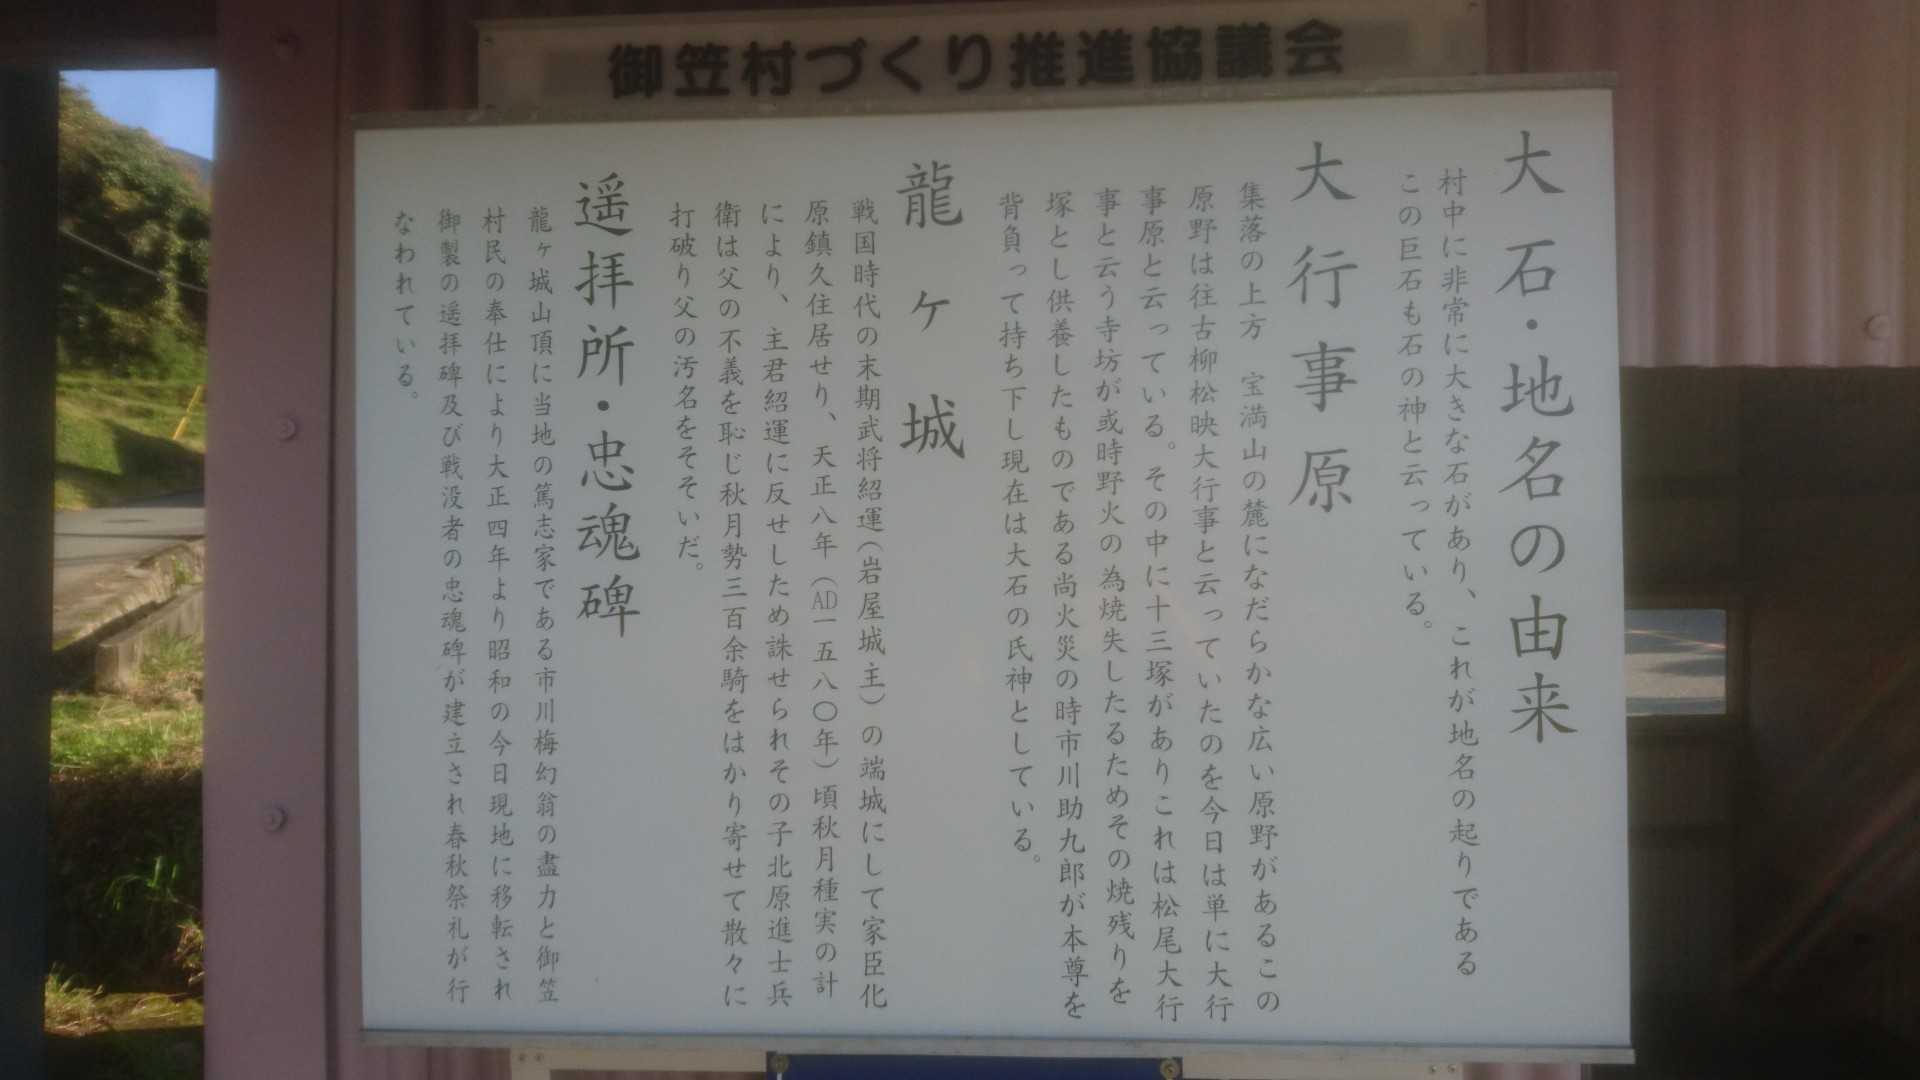 御笠村づくり推進協議会
大石・地名の由来
村中に非常に大きな石があり、これが地名の起りである
この巨石も石の神と云っている。
大行事原
集落の上方　宝満山の麓になだらかな広い原野があるこの
原野は往古柳松映大行事と云っていたのを今日は単に大行
事原と云っている。その中に十三塚がありこれは松尾大行
事と云う寺坊が或時野火の為焼失したるためその焼残りを
塚とし供養したものである尚火災の時市川助九郎が本尊を
背負って持ち下し現在は大石の氏神としている。
龍ヶ城
戦国時代の末期武将紹運（岩屋城主）の端城にして家臣化
原鎮久住居せり、天正八年（AD一五八〇年）頃秋月種実の計
により、主君紹運に反せしため誅せられその子北原進士兵
衛は父の不義を恥じ秋月勢三百余騎をはかり寄せて散々に
打破り父の汚名をそそいだ。
遥拝所・忠魂碑
龍ヶ城山頂に当地の篤志家である市川梅幻翁の盡力と御笠
村民の奉仕により大正四年より昭和の今日現地に移転され
御製の遥拝碑及び戦没者の忠魂碑が建立され春秋祭礼が行
なわれている。